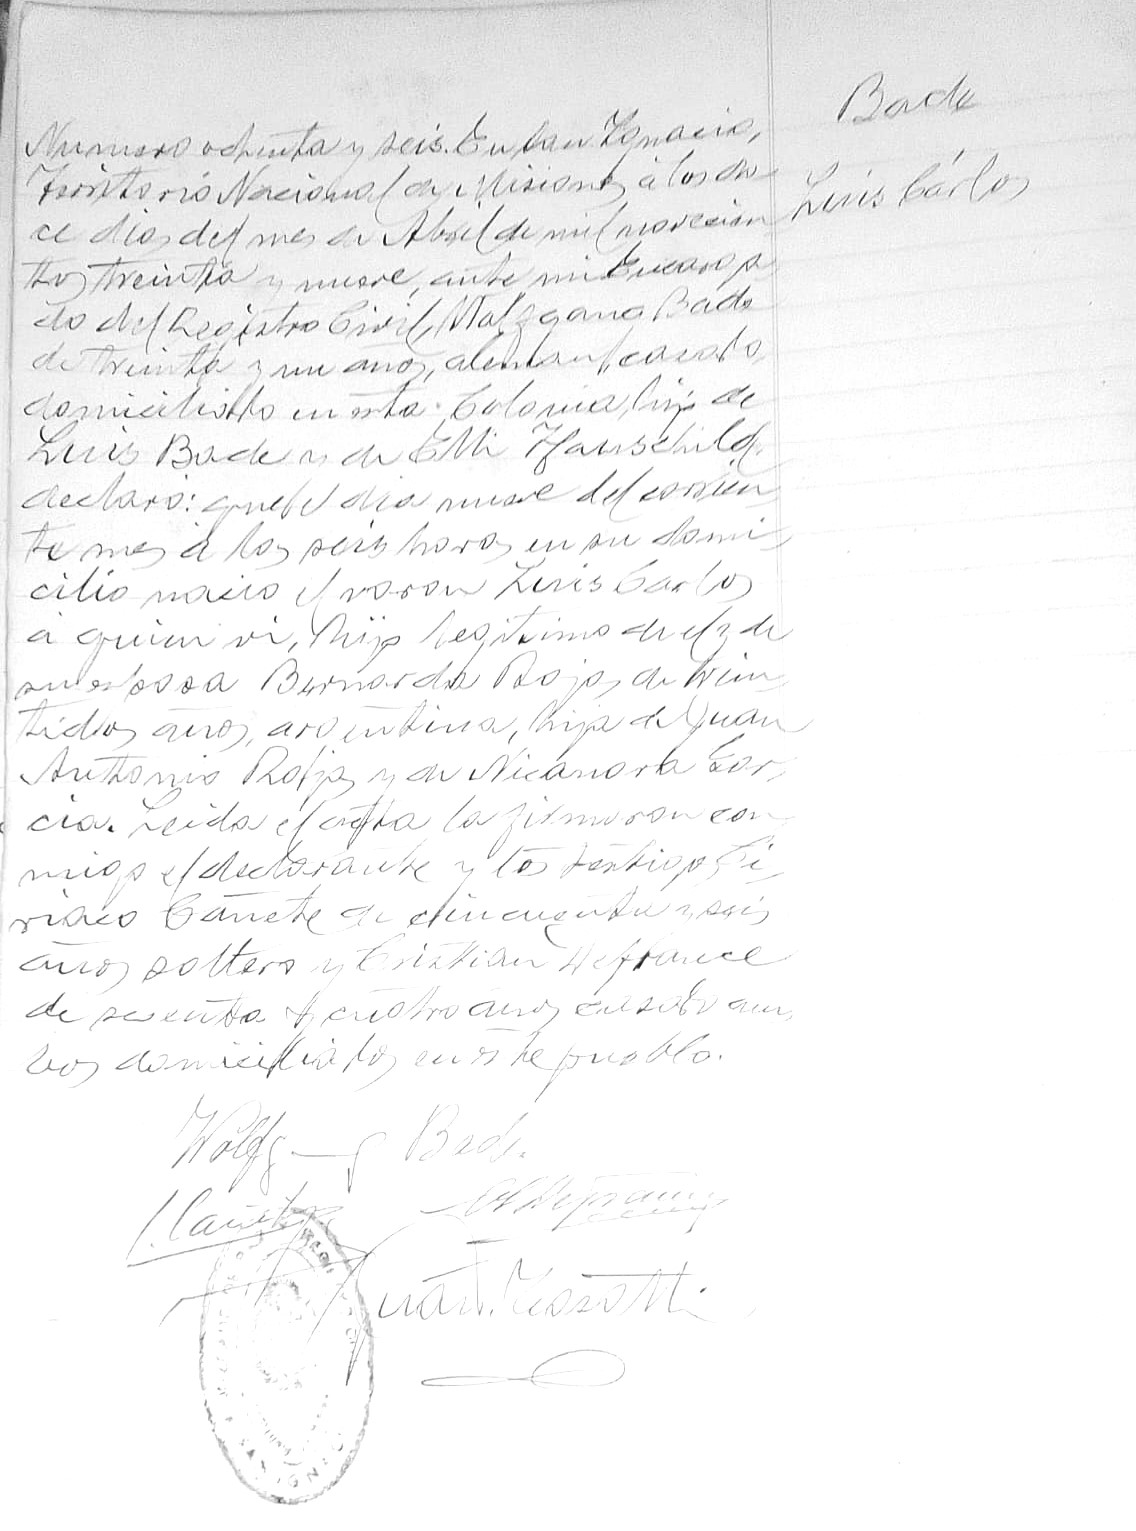 Bade
Luis Cárlos
Numero ochenta y seis. En San Ignacio,
Territorio Nacional de Misiones á los do-
ce dias del mes de Abril de mil novecien
tos treinta y nueve, ante mi Encarga
do del Registro Civil, Wolfgang Bade
de treinta y un años, aleman, casado,
domiciliado en esta Colonia, hijo de
Luis Bade y de Elli Hauschild,
declaró: que el dia nueve del corrien
te mes á las seis horas en su domi-
cilio nacio el varon Luis Carlos
á quien vi, hijo legitimo de el y de
su esposa Bernarda Rojas de vein
tidos años, argentina, hija de Juan
Antonio Rojas y de Nicanora Gar-
cia. Leida el acta la firmaron con-
migo el declarante y los testigos Ci-
riaco Cañete de cincuenta y seis
años soltero y Cristian Defrance
de sesenta y cuatro años casado am-
bos domiciliados en este pueblo.
Wolfgang Bade.
C. Cañete
Juan